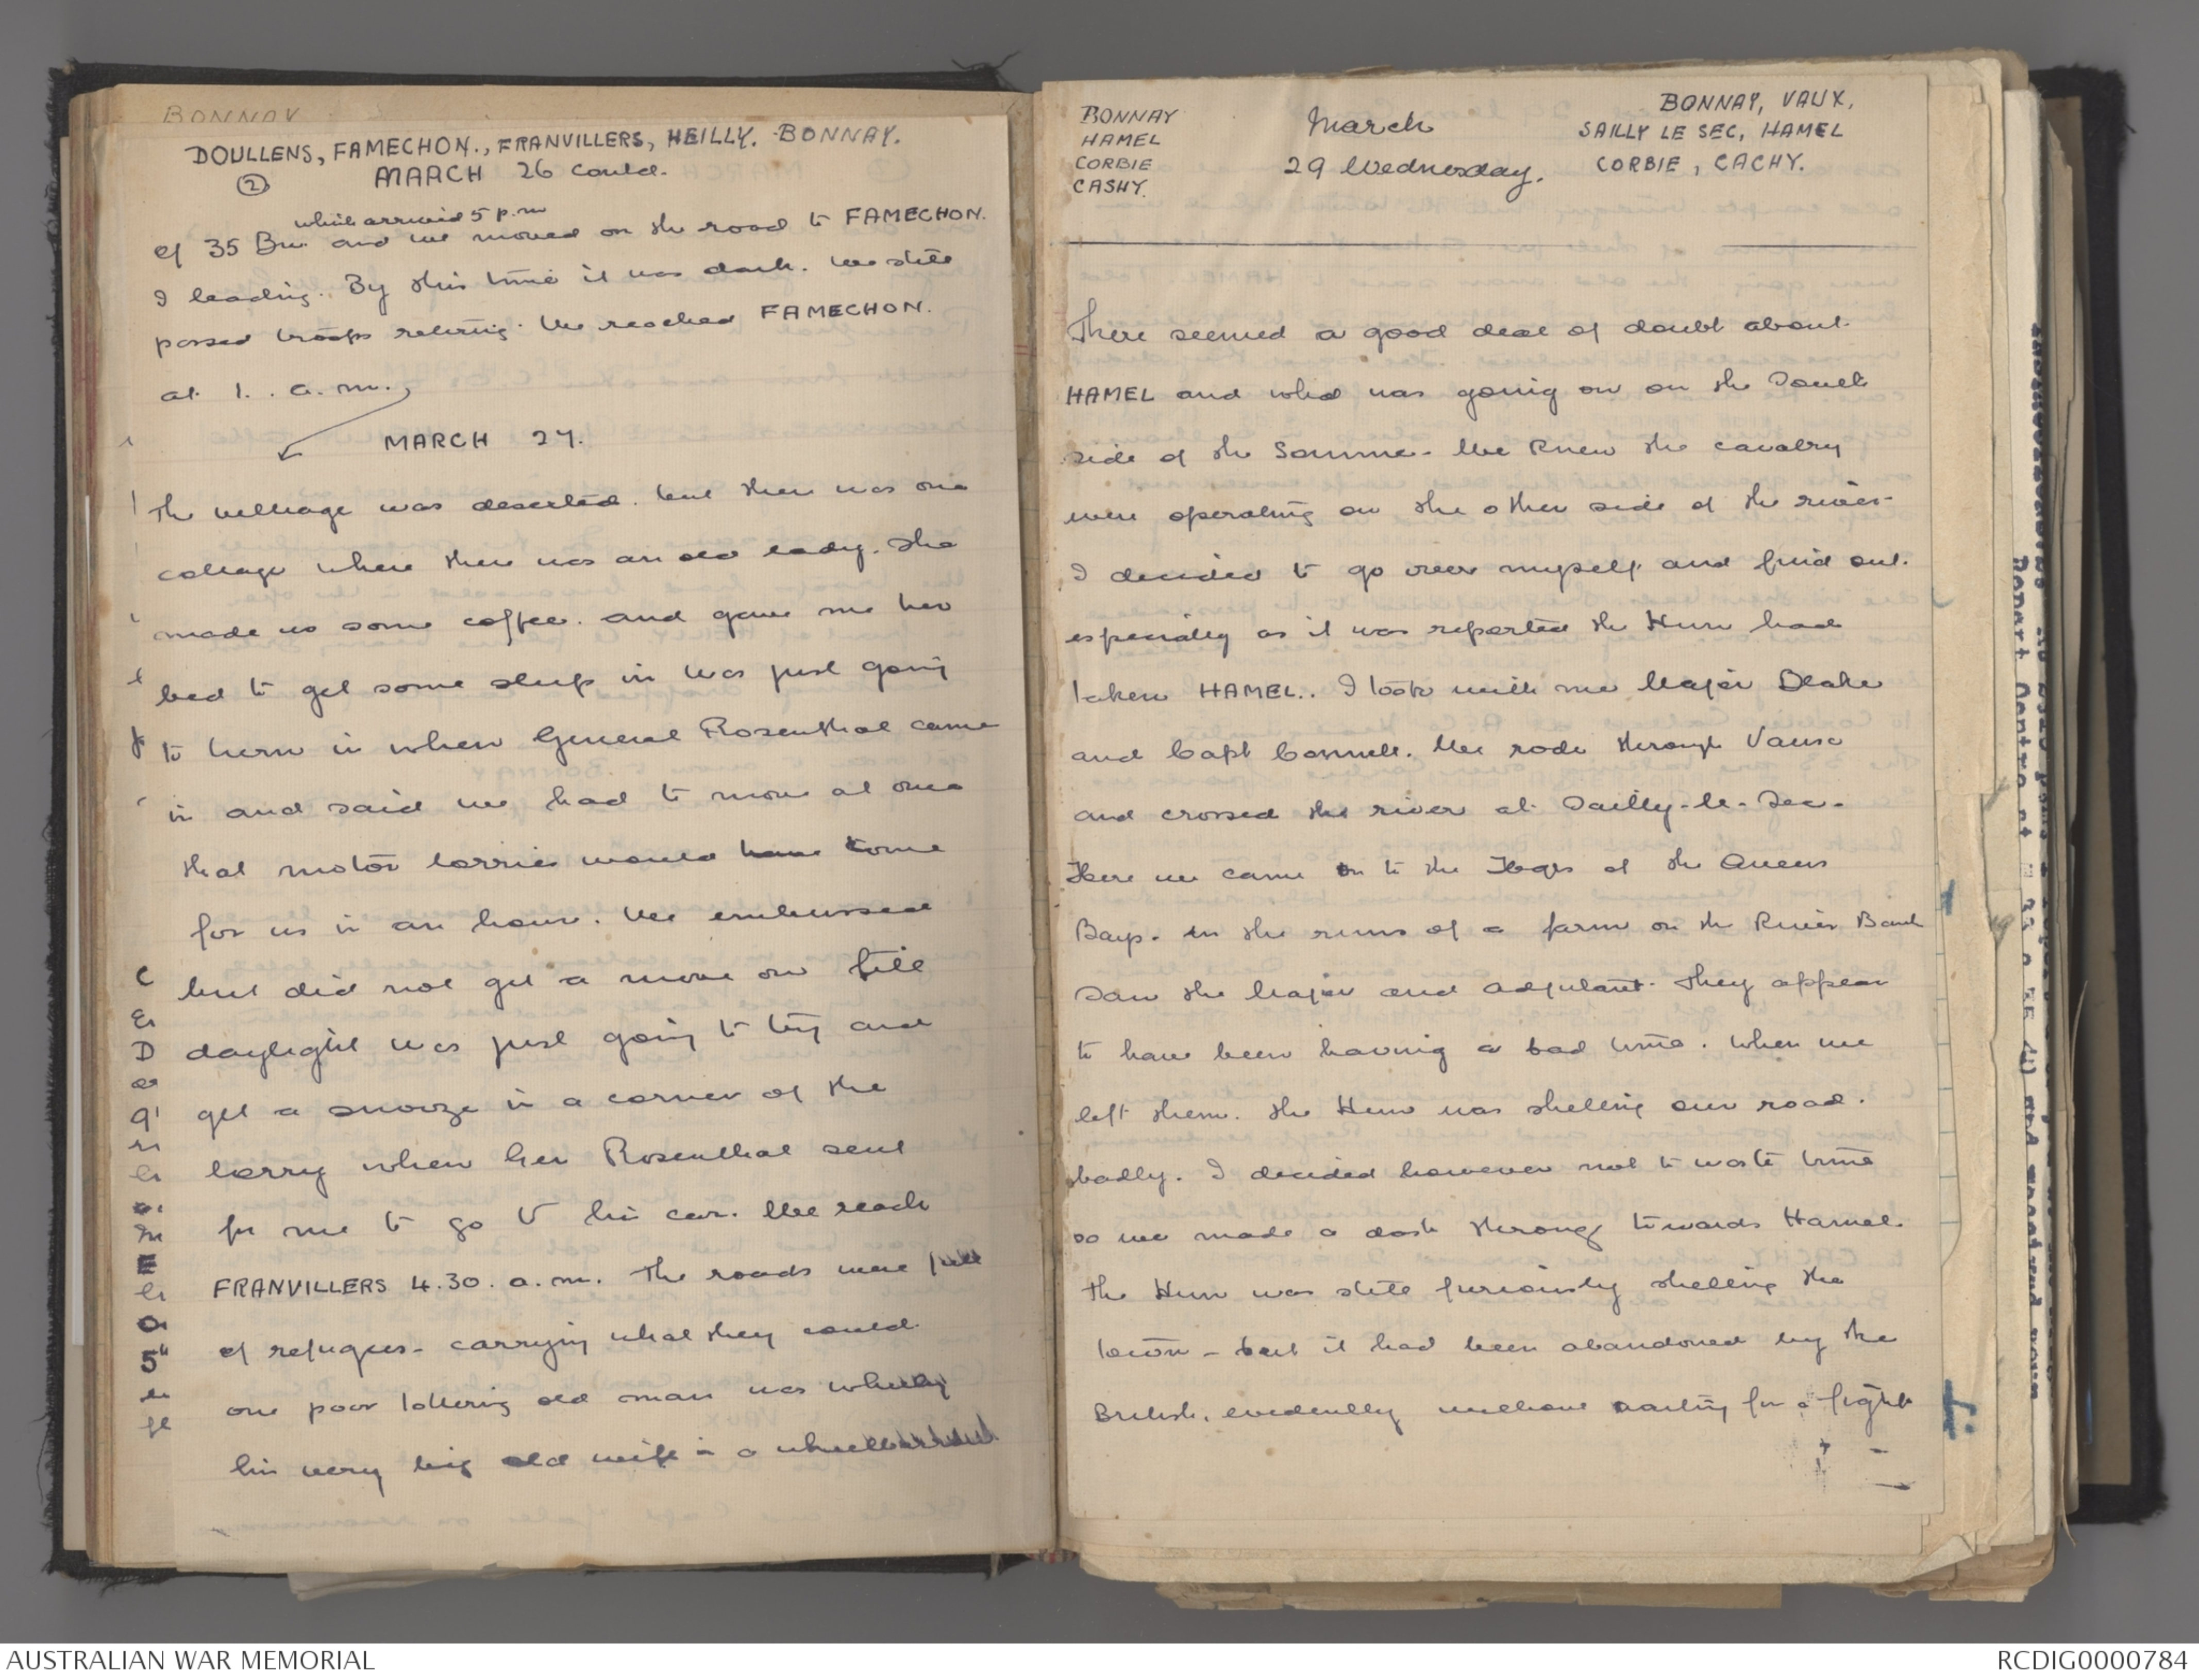 BONNAY
DOULLENS, FAMECHON., FRANVILLERS, HEILLY. BONNAY.
② MARCH 26 contd.
which arrived 5 p.m
of 35 Bn. and we moved on the road to FAMECHON.
I leading. By this time it was dark. We still
passed troops retiring. We reached FAMECHON.
at 1. a.m.,
MARCH 27.
The village was deserted. but there was one
cottage where there was an old lady. She
made us some coffee. and gave me her
bed to get some sleep in was just going
to turn in when General Rosenthal came
in and said we had to move at once
that motor lorries would have come
for us in an hour. We embussed
but did not get a move on till
daylight was just going to try and
get a snooze in a corner of the
lorry when Gen Rosenthal sent
for me to go in his car. We reach
FRANVILLERS 4.30. a.m. The roads were full
of refugees - carrying what they could
one poor tottering old man was wheeling
his very big old wife in a wheelbarrow
BONNAY
HAMEL
CORBIE
CASHY.
March
29 Wednesday.
BONNAY, VAUX,
SAILLY LE SEC, HAMEL
CORBIE, CACHY.
There seemed a good deal of doubt about
HAMEL and what was going on on the South
side of the Somme. We knew the cavalry
were operating on the other side of the river
I decided to go over myself and find out.
especially as it was reported the Hun had
taken HAMEL.. I took with me Major Blake
and Capt Connell. We rode through Vaux
and crossed the river at Sailly-le-Sec.
Here we came on to the Hqrs of the Queens
Bays. in the ruins of a farm on the River Bank
Saw the Major and adjutant. They appear
to have been having a bad time. When we
left them. the Hun was shelling our road.
badly. I decided however not to waste time
so we made a dash through towards Hamel.
the Hun was still furiously shelling the
town - but it had been abandoned by the
British, evidently without waiting for a fight
AUSTRALIAN WAR MEMORIAL
RCDIG0000784